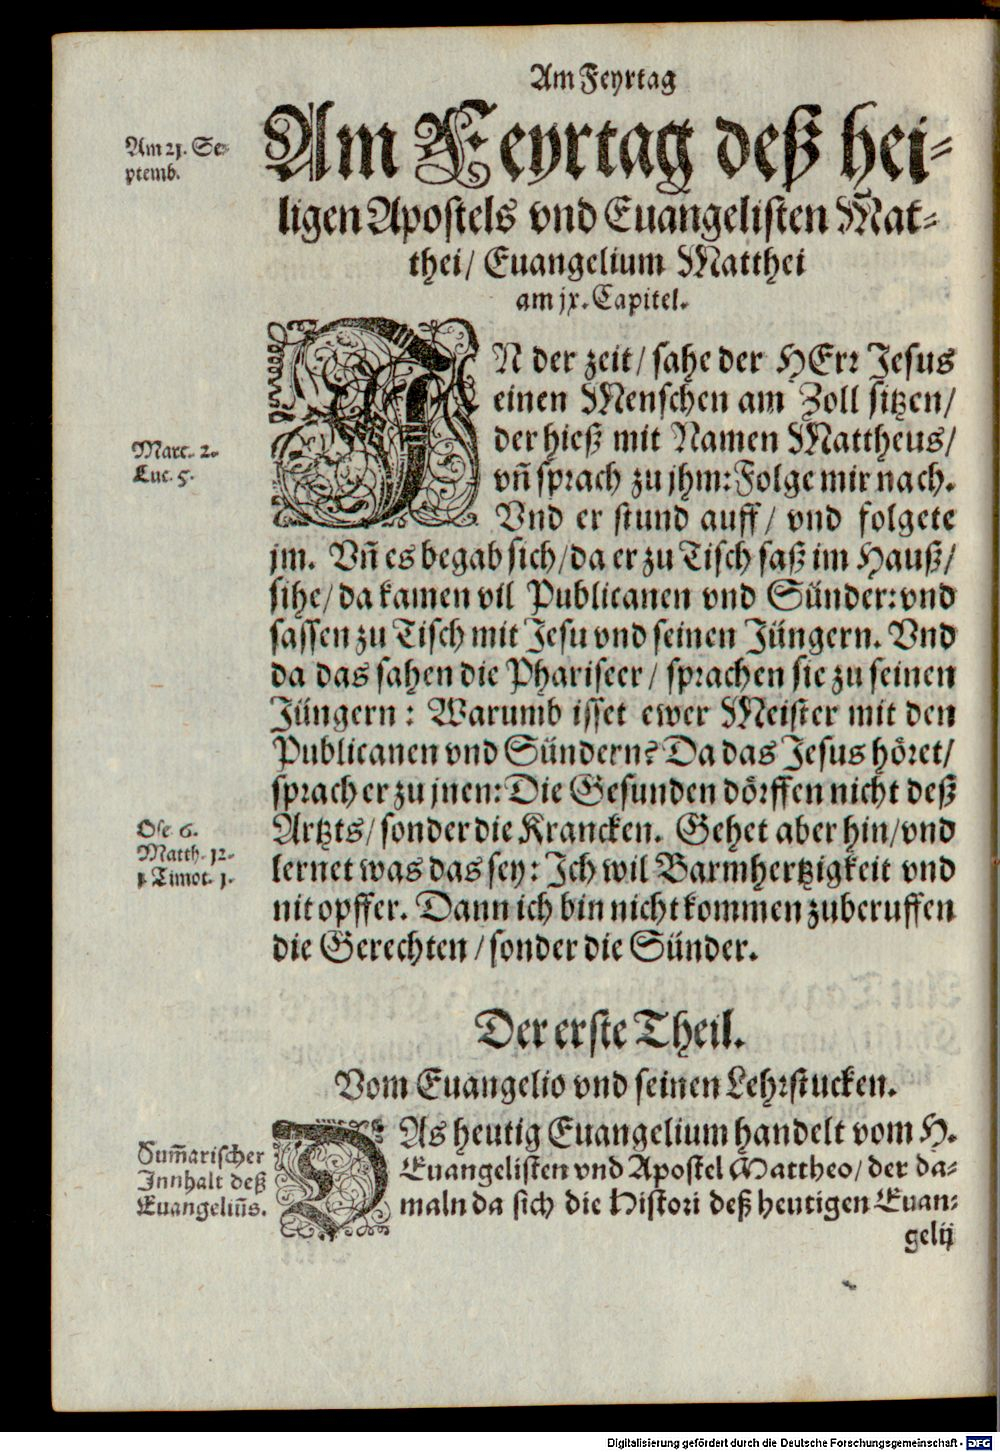 Am Feyrtag
Am 21. Se-
ptemb.
Am Feyrtag deß hei-
ligen Apostels vnd Euangelisten Mat-
thei/ Euangelium Matthei
am jx. Capitel.
Marc. 2.
Luc. 5.
IN der zeit/ sahe der HErr Jesus
einen Menschen am Zoll sitzen/
der hieß mit Namen Mattheus/
vñ sprach zu jhm: Folge mir nach.
Vnd er stund auff/ vnd folgete
jm. Vñ es begab sich/ da er zu Tisch saß im Hauß/
sihe/ da kamen vil Publicanen vnd Sünder: vnd
sassen zu Tisch mit Jesu vnd seinen Jüngern. Vnd
da das sahen die Phariseer/ sprachen sie zu seinen
Jüngern: Warumb isset ewer Meister mit den
Publicanen vnd Sündern? Da das Jesus höret/
sprach er zu jnen: Die Gesunden dörffen nicht deß
Ose. 6.
Matth. 12.
1. Timot. 1.
Artzts/ sonder die Krancken. Gehet aber hin/ vnd
lernet was das sey: Ich wil Barmhertzigkeit vnd
nit opffer. Dann ich bin nicht kommen zuberuffen
die Gerechten/ sonder die Sünder.
Der erste Theil.
Vom Euangelio vnd seinen Lehrstucken.
Sum̃arischer
Innhalt deß
Euangeliũs.
DAs heutig Euangelium handelt vom H.
Euangelisten vnd Apostel Mattheo/ der da-
maln da sich die Histori deß heutigen Euan-
gelij
Digitalisierung gefördert durch die Deutsche Forschungsgemeinschaft - DFG